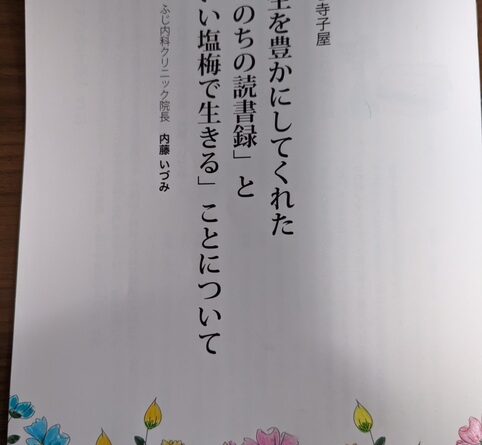 寺子屋
を豊かにしてくれた
のちの読書録」と
い塩梅で生きる」ことについて
ふじ内科クリニック院長 内藤 いづみ